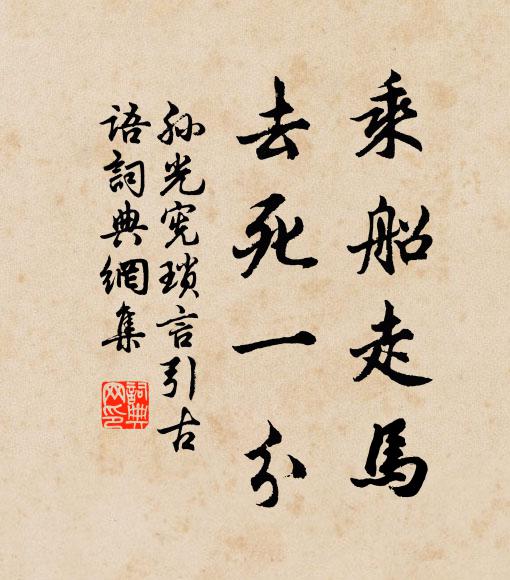 乘船走馬
去死一分
孙光宪瑣言引古
语詞典網集
詞典網印